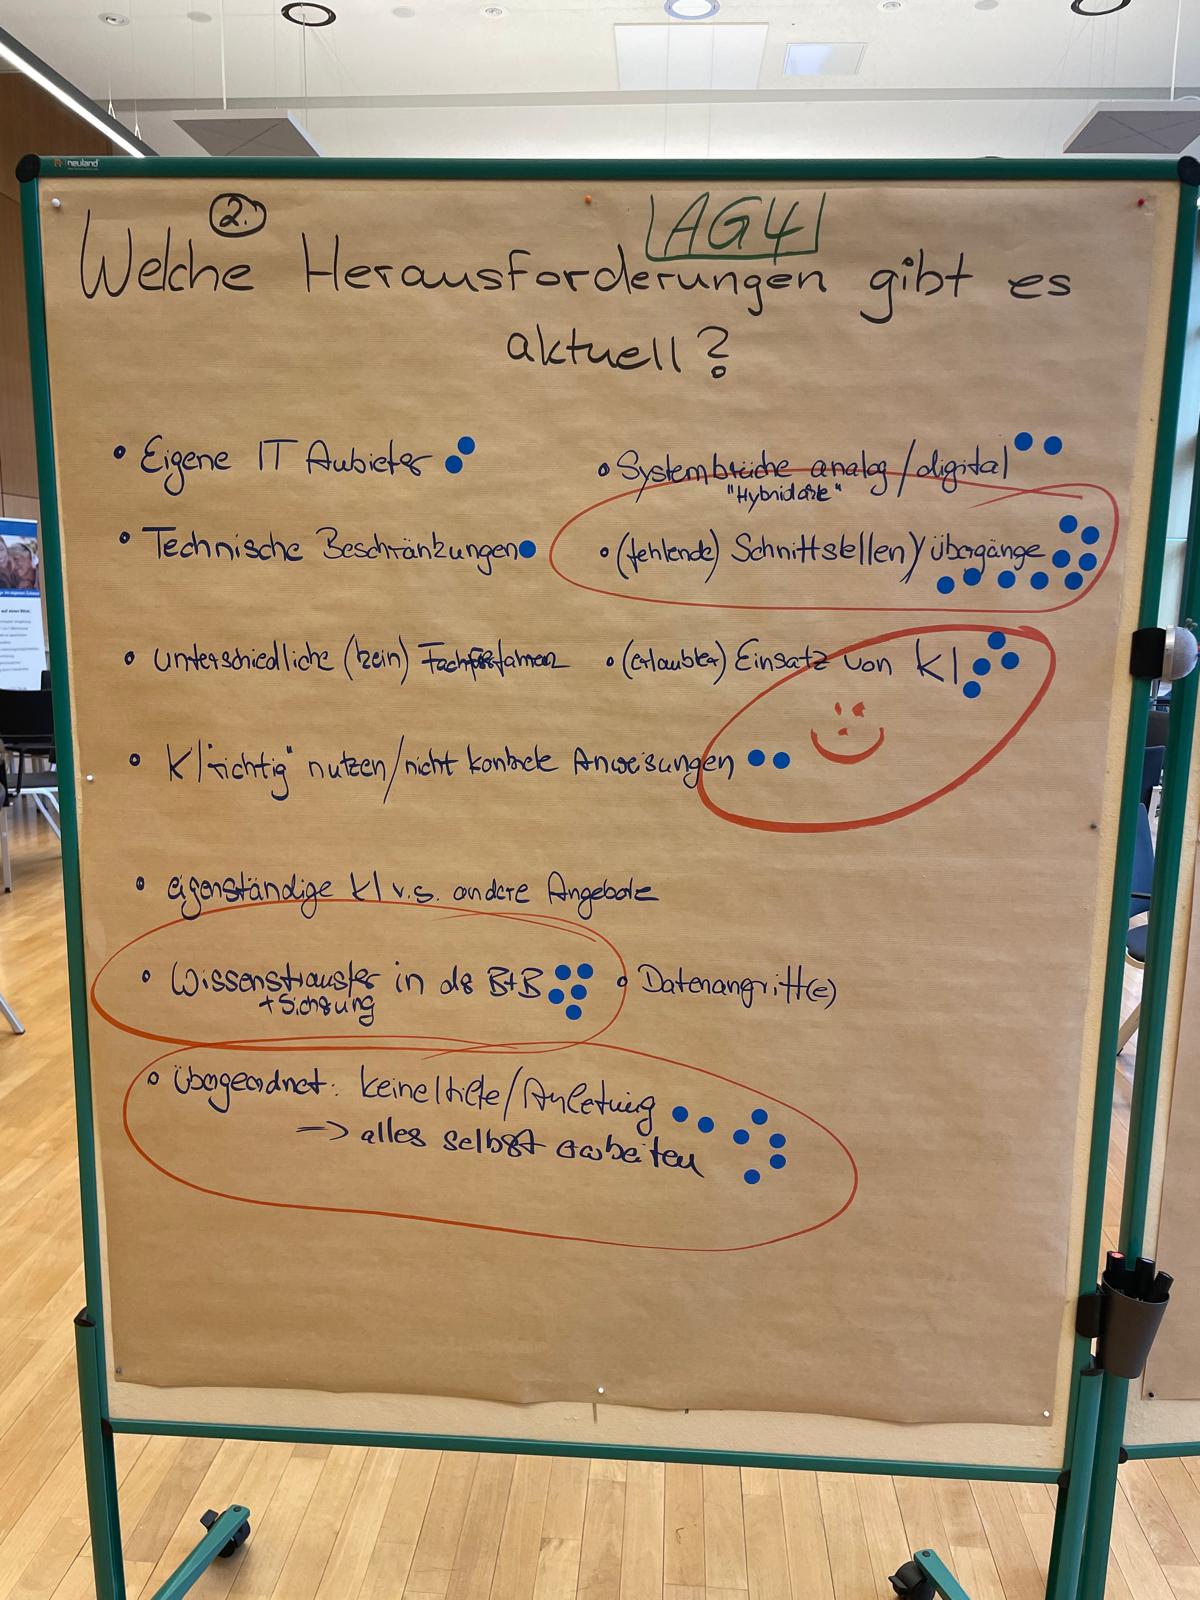 neuland
2.
AG4
Welche Herausforderungen gibt es
aktuell?
• Eigene IT Anbieter
• Systembrüche analog/digital
"Hybridakte"
• Technische Beschränkungen
• (fehlende) Schnittstellen/Übergänge
• unterschiedliche (kein) Fachverfahren
• (erlaubter) Einsatz von KI
• KI "richtig" nutzen/nicht konkrete Anweisungen
• eigenständige KI v.s. andere Angebote
• Wissenstransfer in der B+B
+ Sicherung
• Datenangriff(e)
• übergeordnet: keine Hilfe/Anleitung
=> alles selbst erarbeiten